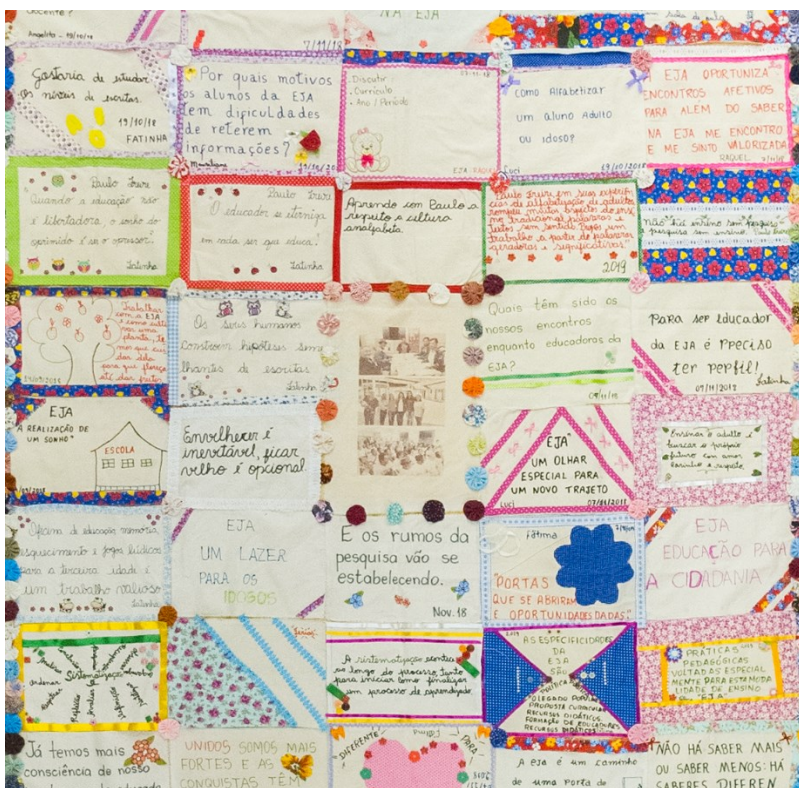 Docente?
Angelita - 19/10/18
7/11/18
NA EJA
Gostaria de estudar
os níveis de escritas.
19/10/18
FATINHA
Por quais motivos
os alunos da EJA
tem dificuldades
de reterem
informações?
19/10/20
- Discutir
- Currículo
- Ano / Período
EJA
como Alfabetizar
um aluno Adulto
ou idoso?
Luci
19/10/2018
A EJA OPORTUNIZA
ENCONTROS AFETIVOS
PARA ALÉM DO SABER
NA EJA ME ENCONTRO
E ME SINTO VALORIZADA
RAQUEL
Paulo Freire
Quando a educação não
é libertadora, o sonho do
oprimido é ser o opressor.
Fatinha
Paulo Freire
O educador se eterniza
em cada ser que educa.
Fatinha
Aprendo com Paulo a
respeito e cultura
analfabeta.
Paulo Freire em suas
de alfabetização de adultos
com o
tradicional, palavras e
textos sem sentido. Propôs um
trabalho a partir de palavras
geradoras e significativas"
2019
não há ensino sem pesquisa
pesquisa sem ensino.
Trabalhar
com a EJA
é como
uma
planta,
que
das dela
para que floresça
até dar frutos.
Os seres humanos
constroem hipóteses seme
lhantes de escritas
Fatinha
Quais têm sido os
nossos encontros
enquanto educadoras da
EJA?
07/11/18
Para ser Educador
da EJA é Preciso
ter perfil!
07/11/2018
Fatinha
EJA
"A REALIZAÇÃO DE
UM SONHO"
ESCOLA
Envelhecer é
inevitável, ficar
velho é opcional
EJA
UM OLHAR
ESPECIAL PARA
UM NOVO TRAJETO
LUCI
07/11/2018
Ensinar o adulto é
buscar o próprio
futuro com amor
carinho e respeito.
Oficina de educação memória,
esquecimento e jogos lúdicos
para a terceira idade é
um trabalho valioso
Fatinha
EJA
UM LAZER
PARA OS
IDOGOS
E os rumos da
pesquisa vão se
estabelecendo.
Nov. 18
Fátima
"PORTAS
QUE SE ABRIRAM
E OPORTUNIDADES DADAS"
EJA
EDUCAÇÃO PARA
A CIDADANIA
Sistematização
ordenar
A sistematização acontece
ao longo do processo, tanto
para iniciar como finalizar
um processo de aprendizado.
AS ESPECIFICIDADES
DA
EJA
SÃO
PRÁTICA
COLEGADO POPULAR
PROPOSTA CURRICULAR
RECURSOS DIDÁTICOS
FORMAÇÃO DE EDUCADORES
RECURSOS DIDÁTICOS
PRÁTICAS
PEDAGÓGICAS
VOLTADAS ESPECIAL
MENTE PARA ESTA MODA
LIDADE DE ENSINO
"EJA"
Já temos mais
consciência de nosso
UNIDOS SOMOS MAIS
FORTES E AS
CONQUISTAS TÊM
DIFERENTE
PARA
A eja é um caminho
de uma porta de
NÃO HÁ SABER MAIS
OU SABER MENOS: HÁ
SABERES DIFEREN